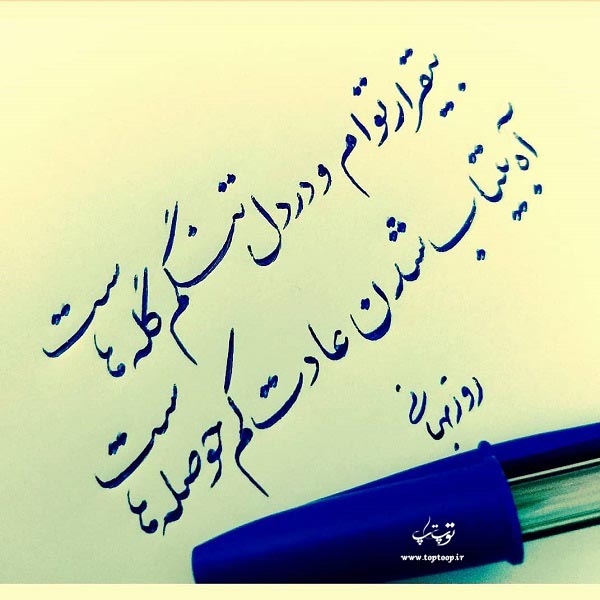 بیقرار توام و در دل تنگم گله هاست
آه بیتاب شدن عادت کم حوصله هاست
روزبهانی
توپ تاپ
www.toptoop.ir